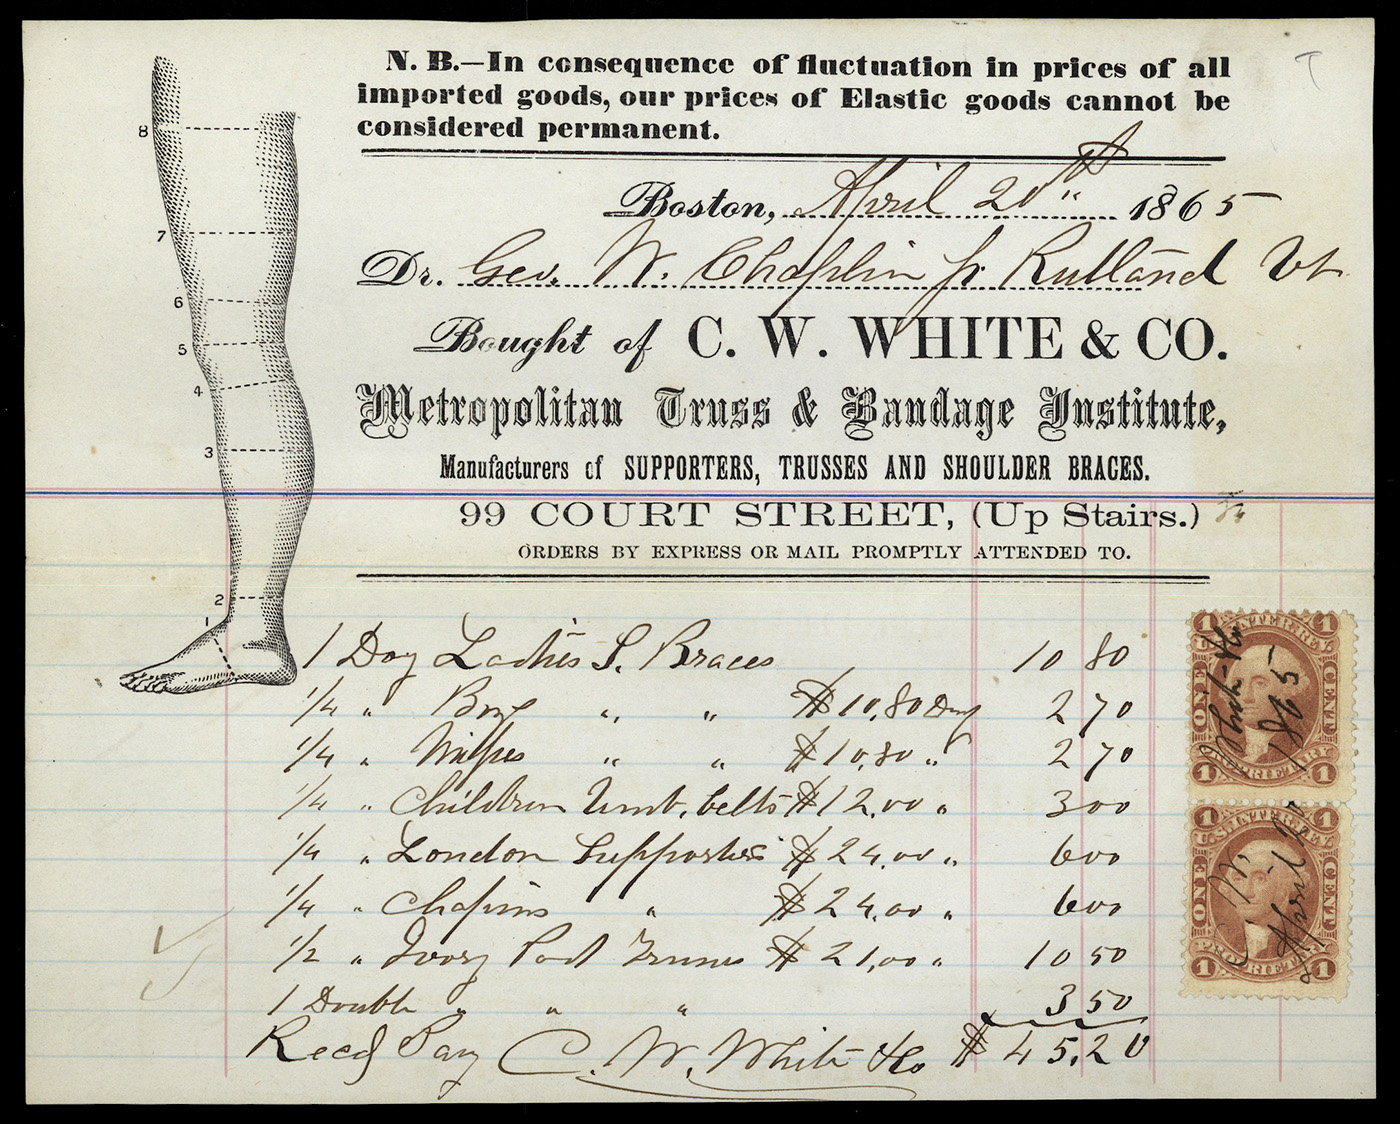 N. B.—In consequence of fluctuation in prices of all
imported goods, our prices of Elastic goods cannot be
considered permanent.
Boston, April 20th 1865
Dr. Geo. W. Chaplin Jr Rutland Vt
Bought of C. W. WHITE & CO.
Metropolitan Truss & Bandage Institute,
Manufacturers of SUPPORTERS, TRUSSES AND SHOULDER BRACES.
99 COURT STREET, (Up Stairs.)
ORDERS BY EXPRESS OR MAIL PROMPTLY ATTENDED TO.
8
7
6
5
4
3
2
1
1 Doz Ladies S. Braces 10 80
1/4 " Boys " " $10,80 Doz 2 70
1/4 " Misses " " $10,80 " 2 70
1/4 " Children Umb. belts $12,00 " 3 00
1/4 " London Supporters $24,00 " 6 00
1/4 " Chapins " $24,00 " 6 00
1/2 " Ivory Pad Trusses $21,00 " 10 50
1 Double " " " 3 50
Recd Pay C. W. White & Co $45,20
1 U.S. INTER. REV. 1
ONE CENT
1 PROPRIETARY 1
1865
1 U.S. INTER. REV. 1
ONE CENT
1 PROPRIETARY 1
April